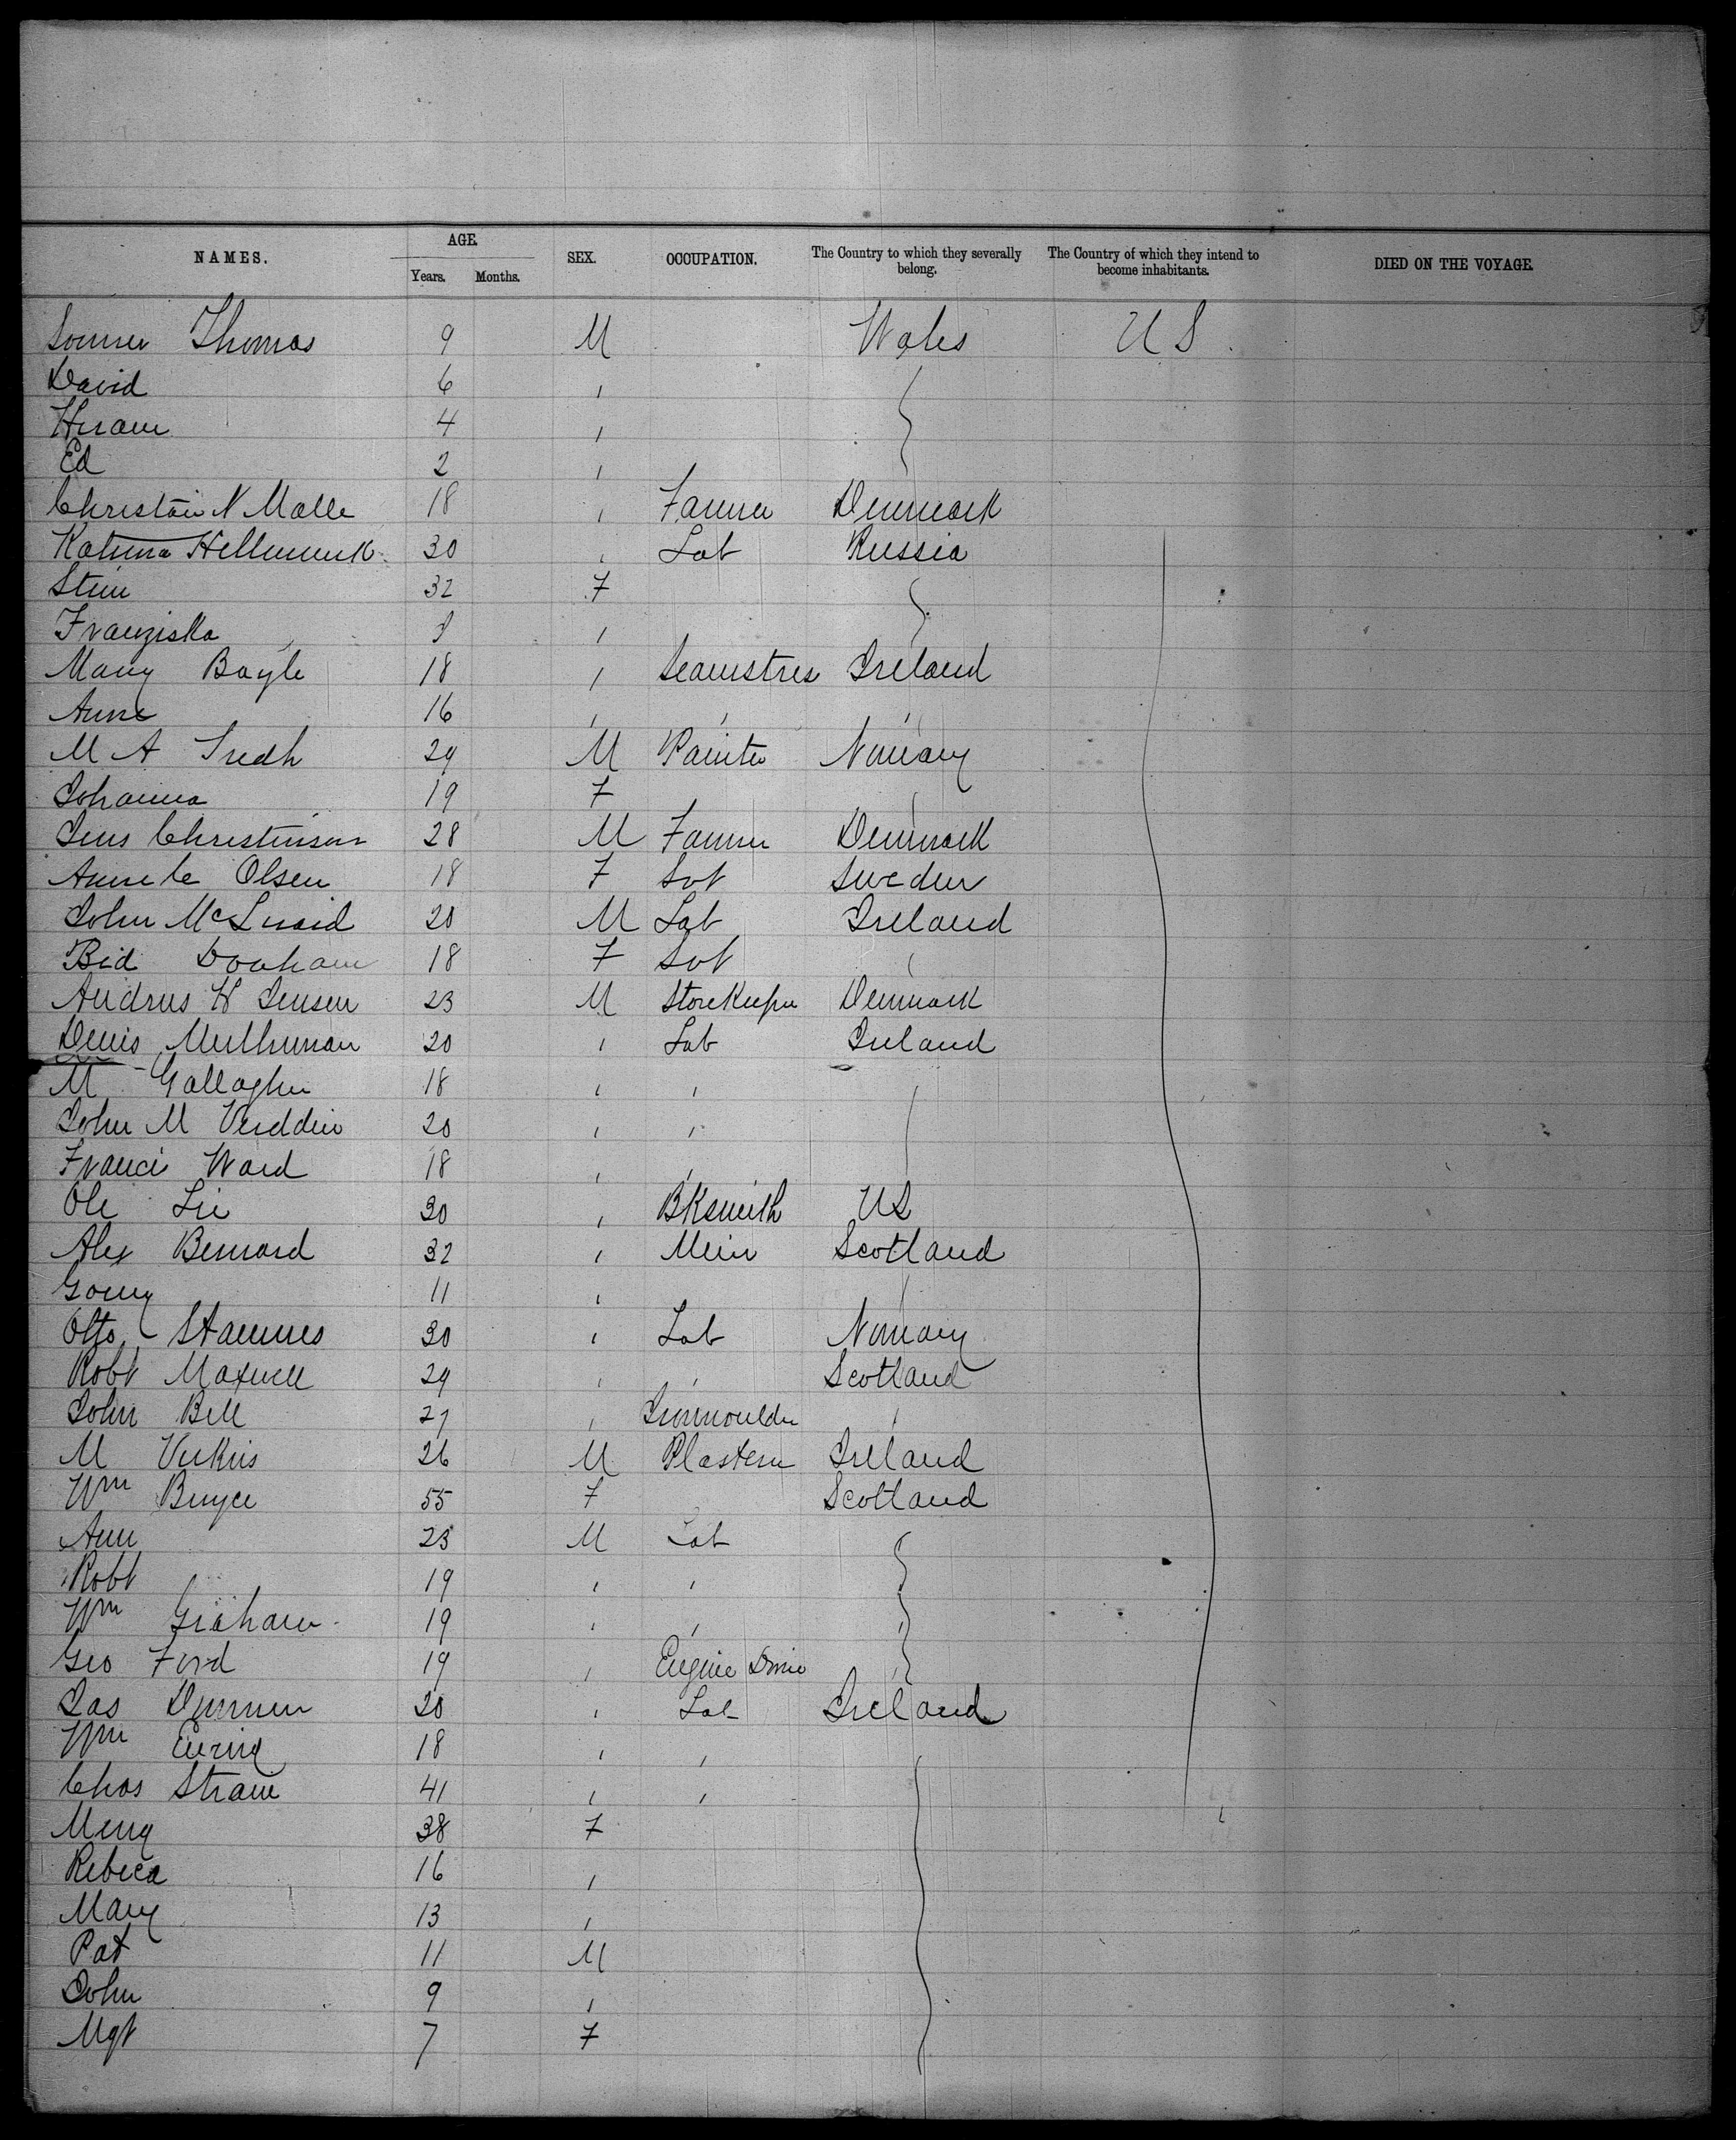 NAMES. AGE. SEX. OCCUPATION. The Country to which they severally belong. The Country of which they intend to become inhabitants. DIED ON THE VOYAGE.
Years. Months.
Thomas 9 M Wales U S
David 6 "
Hiram 4 "
Ed 2 "
Christian N Malle 18 " Farmer Denmark
Katrina 30 " Lab Russia
32 F
Franziska "
Mary Boyle 18 " Seamstres Ireland
Anne 16 " " "
M A 29 M Painter Norway
Johanna 19 F
Jens Christensen 28 M Farmer Denmark
Annete Olsen 18 F Svt Sweden
John 20 M Lab Ireland
Bid 18 F Svt
Andrus H Jensen 23 M Storekeeper Denmark
Denis 20 " Lab Ireland
M Gallagher 18 " "
John M 20 " "
Franci Ward 18 " "
Ole Lie 30 " Bksmith US
Alex Bernard 32 " Miner Scotland
11 "
Otto 30 " Lab Norway
Robt Maxwell 29 " " Scotland
John Bell 27 " Ironmoulder "
M 26 M Plasterer Ireland
Wm Bryce 55 F Scotland
Ann 23 M Lab
Robt 19 " "
Wm Graham 19 " "
Geo Ford 19 " Engine
Jas 20 " Lab Ireland
Wm Ewing 18 " "
Chas 41 " "
38 F
Rebeca 16 "
Mary 13 "
Pat 11 M
John 9 "
Mgt 7 F